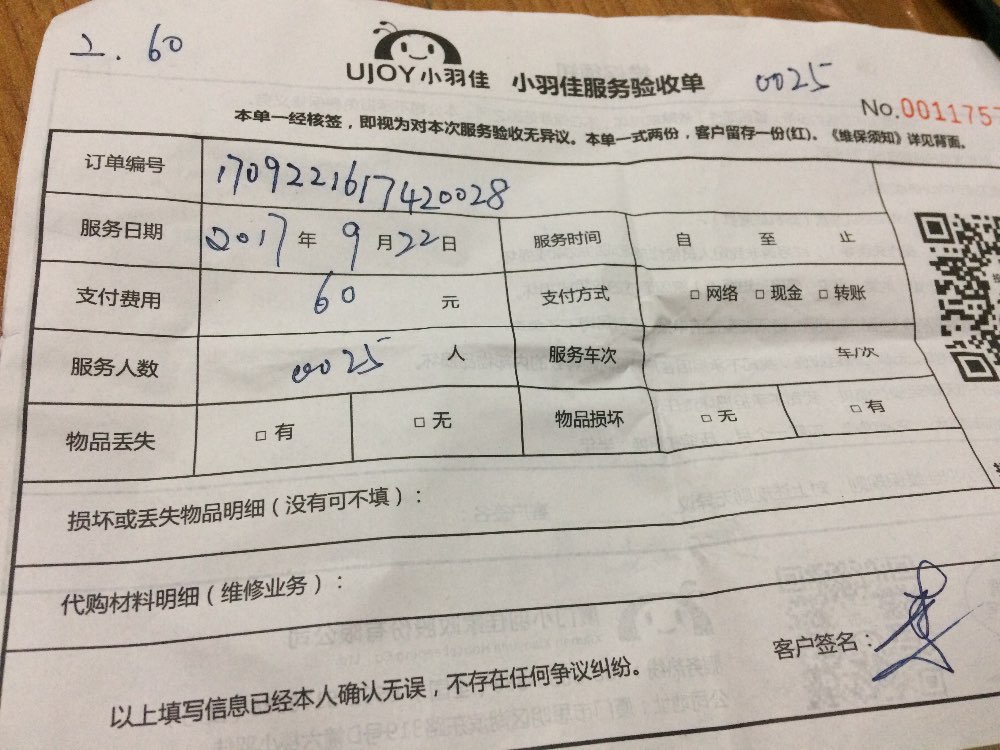 2. 60
UJOY小羽佳 小羽佳服务验收单 0025
No.001175
本单一经核签，即视为对本次服务验收无异议。本单一式两份，客户留存一份(红)。《维保须知》详见背面。
订单编号 1709221617420028
服务日期 2017年 9月22日 服务时间 自 至 止
支付费用 60 元 支付方式 □网络 □现金 □转账
服务人数 0025 人 服务车次 车/次
物品丢失 □有 □无 物品损坏 □无 □有
损坏或丢失物品明细（没有可不填）：
代购材料明细（维修业务）：
客户签名：
以上填写信息已经本人确认无误，不存在任何争议纠纷。